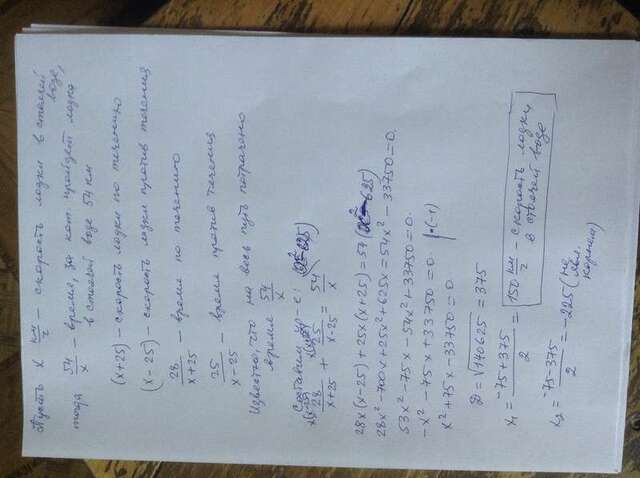 Пусть x км/ч – скорость лодки в стоячей воде,
тогда
54/x – время, за кот. пройдет лодка
в стоячей воде 54 км
(x+25) – скорость лодки по течению
(x-25) – скорость лодки против течения
28/(x+25) – время по течению
25/(x-25) – время против течения
Известно, что на весь путь потрачено
время 54/x
Составим ур-е:
28/(x+25) + 25/(x-25) = 54/x
28x(x-25)+25x(x+25)=54(x²-625)
28x²-700x+25x²+625x=54x²-33750=0.
53x²-75x-54x²+33750=0.
-x²-75x+33750=0. |·(-1)
x²+75x-33750=0.
D=√140625=375
x₁=(-75+375)/2=150 км/ч – скорость лодки
в стоячей воде
x₂=(-75-375)/2=-225 (не явл. корнем)